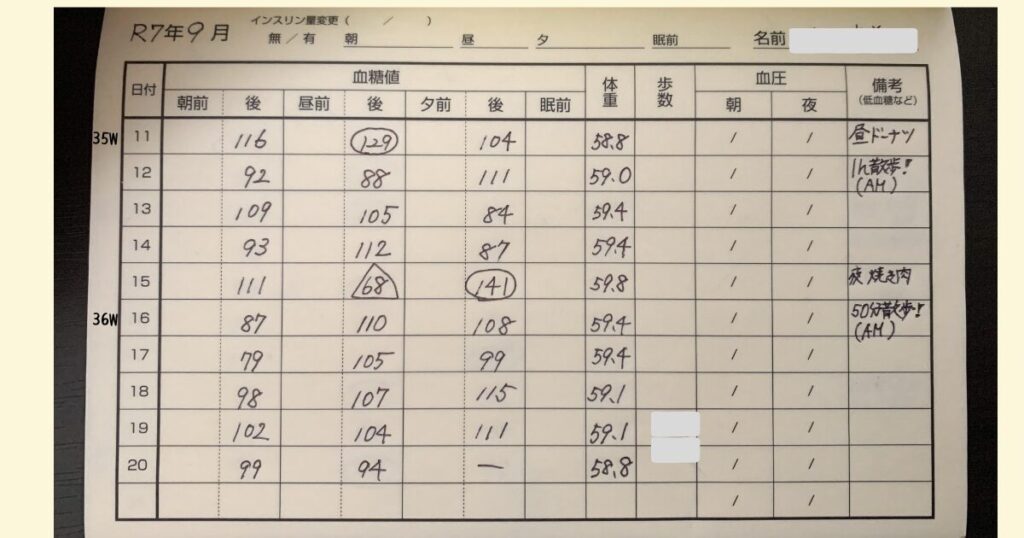 R7年9月 インスリン量変更( / )
無/有 朝 昼 夕 眠前 名前
日付 血糖値 体重 歩数 血圧 備考
朝前 後 昼前 後 夕前 後 眠前 朝 夜 (低血糖など)
35W 11 116 129 104 58.8 / / 昼ドーナツ
12 92 88 111 59.0 / / 1h散歩!(AM)
13 109 105 84 59.4 / /
14 93 112 87 59.4 / /
15 111 68 141 59.8 / / 夜焼き肉
36W 16 87 110 108 59.4 / / 50分散歩!(AM)
17 79 105 99 59.4 / /
18 98 107 115 59.1 / /
19 102 104 111 59.1 / /
20 99 94 — 58.8 / /
/ /